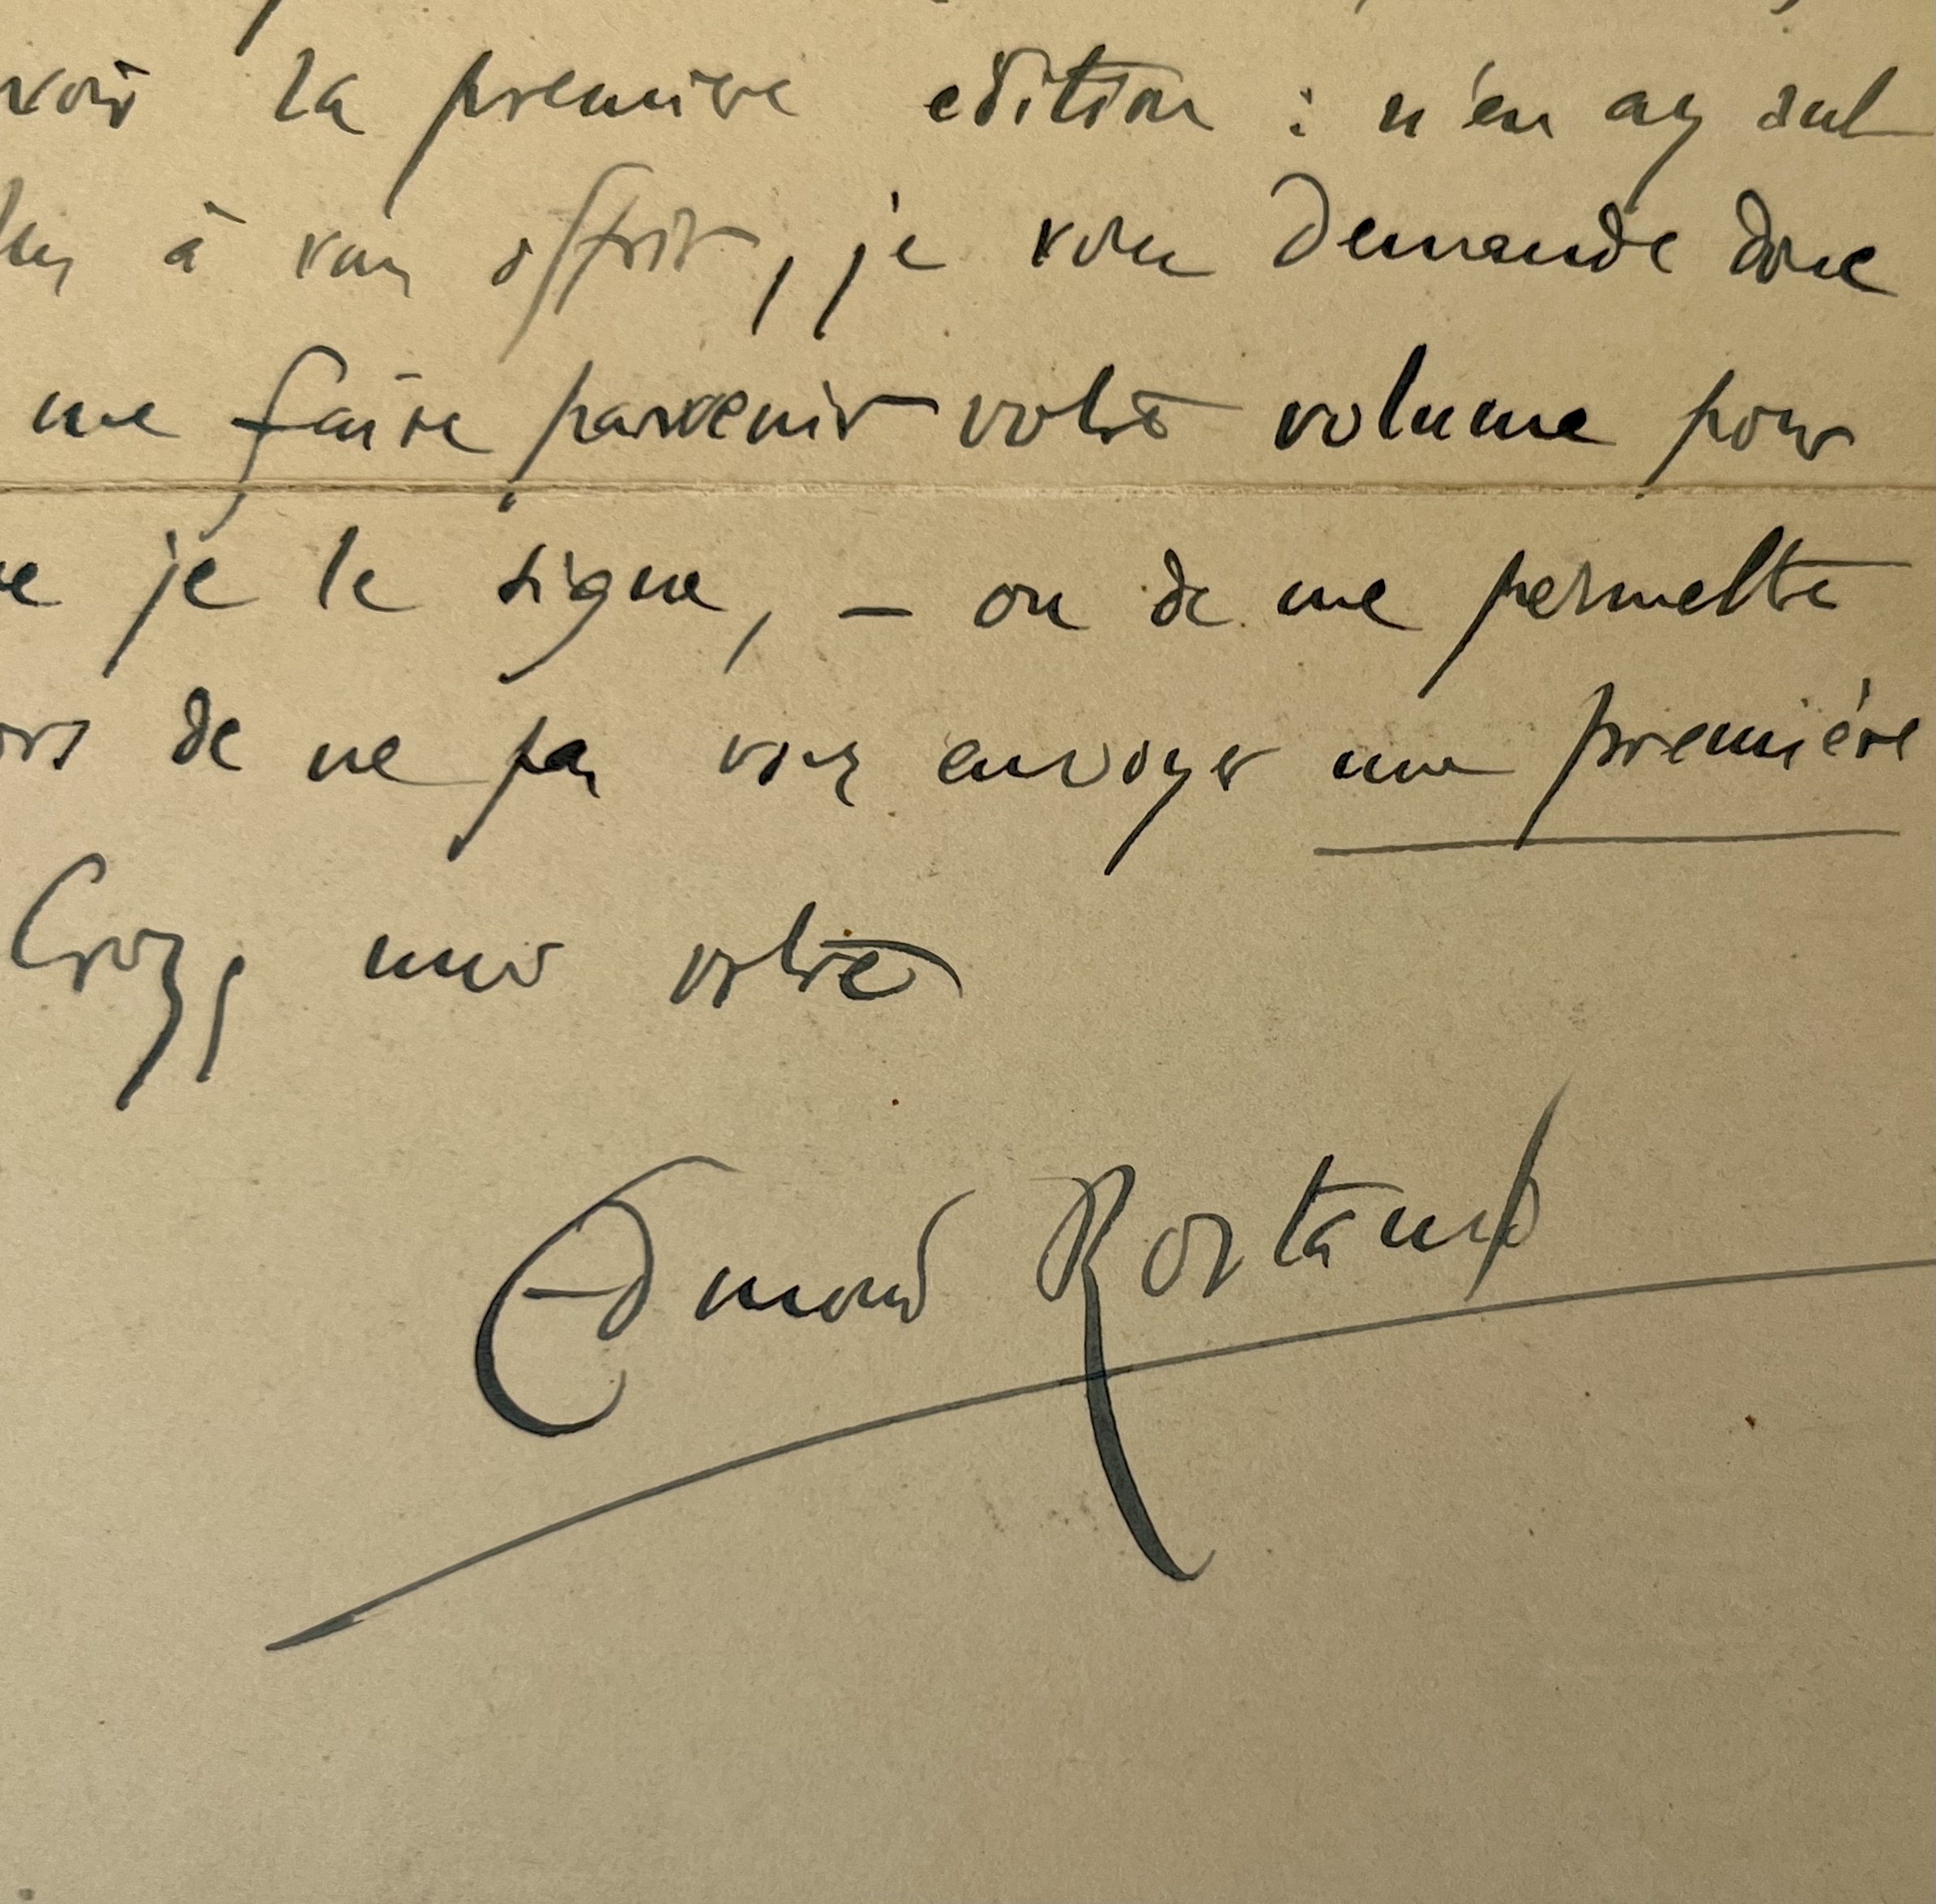 voir la première edition : n'en ay aut
à vous offrir, je vous demande donc
me faire parvenir votre volume pour
je le signe, – ou de me permettre
de ne pas vous envoyer une première
Croyez moi votre
Edmond Rostand